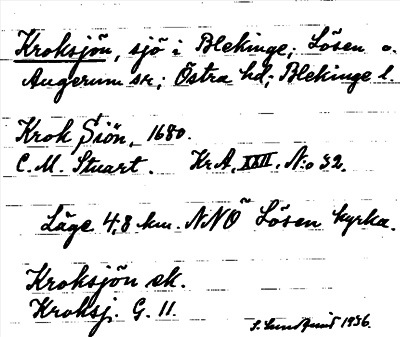 Kroksjön, sjö i Blekinge; Lösen o.
Augerum sn; Östra hd; Blekinge l.
Krok Siön, 1680.
C. M. Stuart. Kr.A. XXII. N:o 32.
Läge 4,8 km. NNÖ Lösen kyrka.
Kroksjön ek.
Kroksj. G. 11.
S. Lundquist 1936.